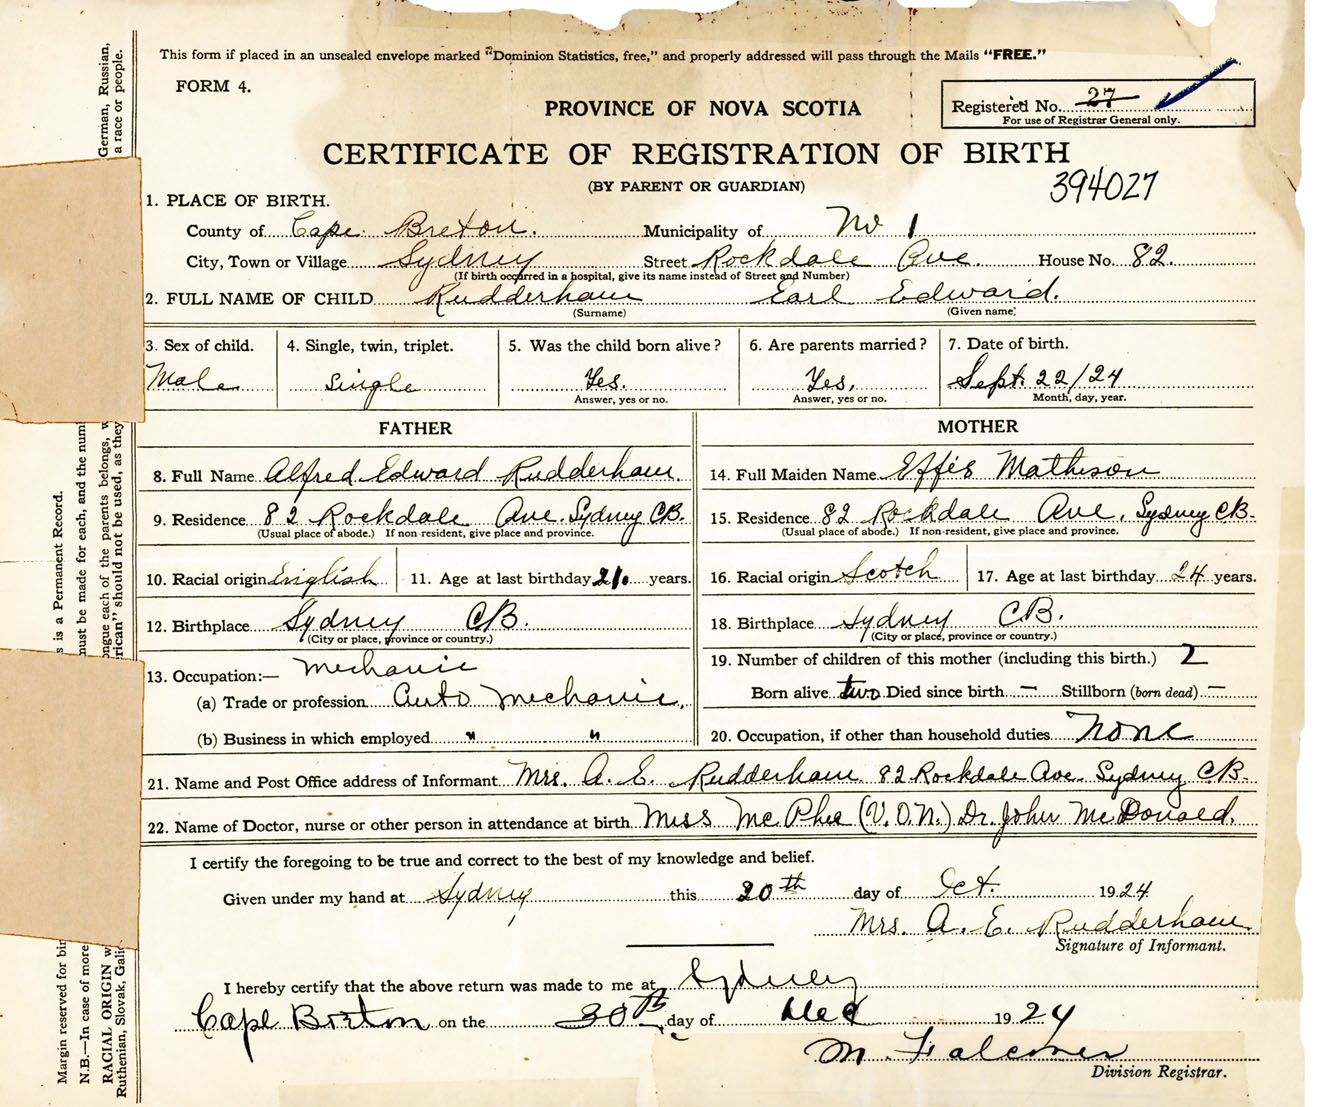 This form if placed in an unsealed envelope marked "Dominion Statistics, free," and properly addressed will pass through the Mails "FREE."
FORM 4.
PROVINCE OF NOVA SCOTIA
Registered No. 27
For use of Registrar General only.
CERTIFICATE OF REGISTRATION OF BIRTH
(BY PARENT OR GUARDIAN)
394027
1. PLACE OF BIRTH.
County of Cape Breton. Municipality of No 1
City, Town or Village Sydney Street Rockdale Ave. House No. 82.
(If birth occurred in a hospital, give its name instead of Street and Number)
2. FULL NAME OF CHILD Rudderham Earl Edward.
(Surname) (Given name)
3. Sex of child. 4. Single, twin, triplet. 5. Was the child born alive? 6. Are parents married? 7. Date of birth.
Male Single Yes. Yes. Sept. 22/24
Answer, yes or no. Answer, yes or no. Month, day, year.
FATHER MOTHER
8. Full Name Alfred Edward Rudderham. 14. Full Maiden Name Effie Matheson
9. Residence 82 Rockdale Ave. Sydney CB. 15. Residence 82 Rockdale Ave. Sydney CB.
(Usual place of abode.) If non-resident, give place and province. (Usual place of abode.) If non-resident, give place and province.
10. Racial origin English 11. Age at last birthday years. 16. Racial origin Scotch 17. Age at last birthday 24 years.
12. Birthplace Sydney CB. 18. Birthplace Sydney CB.
(City or place, province or country.) (City or place, province or country.)
13. Occupation:— Mechanic 19. Number of children of this mother (including this birth.) 2
(a) Trade or profession Auto Mechanic. Born alive two Died since birth — Stillborn (born dead) —
(b) Business in which employed " " 20. Occupation, if other than household duties None
21. Name and Post Office address of Informant Mrs. A. E. Rudderham 82 Rockdale Ave. Sydney CB.
22. Name of Doctor, nurse or other person in attendance at birth Miss McPhee (V.O.N.) Dr. John McDonald.
I certify the foregoing to be true and correct to the best of my knowledge and belief.
Given under my hand at Sydney this 20th day of Oct. 1924
Mrs. A. E. Rudderham.
Signature of Informant.
I hereby certify that the above return was made to me at Sydney
Cape Breton on the 30th day of Dec 1924
M. Falconer
Division Registrar.
Margin reserved for bin
s is a Permanent Record.
N.B.—In case of more
must be made for each, and the num
RACIAL ORIGIN w
ongue each of the parents belongs, w
German, Russian,
Ruthenian, Slovak, Galic
rican" should not be used, as they
a race or people.